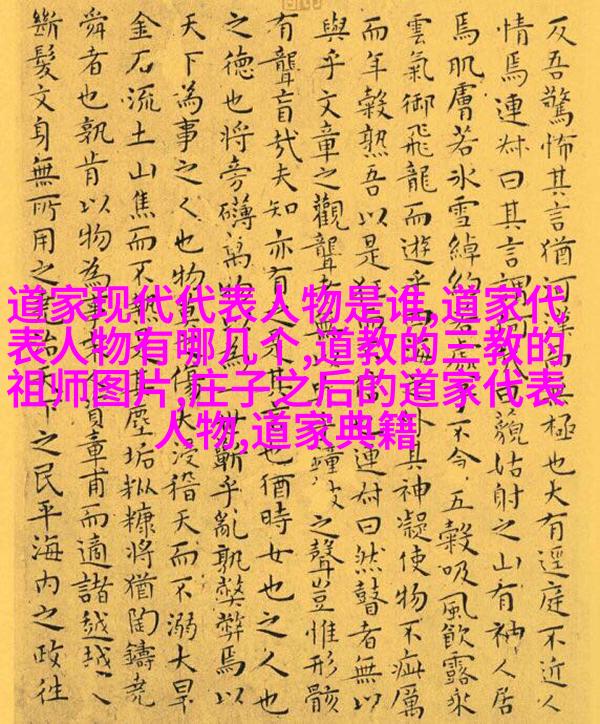 道家现代代表人物是谁,道家代
表人物有哪几个,道教的三教的
祖师图片,庄子之后的道家代表
人物,道家典籍
反吾驚怖其言猶河極也大有逕庭不近人
情焉連叔曰其言謂藐姑射之山有神人居
焉肌膚若冰雪綽約不食五穀吸風飲露乘
雲氣御飛龍而遊乎外其神凝使物不疵厲
而年穀熟吾以是連叔曰然瞽者無以
與乎文章之觀聾者無鐘鼓之聲豈惟形骸
有聾盲哉夫知亦有之是其言也猶時女也之人也
之德也將旁礴萬物以為一世蘄乎亂孰弊弊焉以
天下為事之人也物莫之傷大浸稽天而不溺大旱
金石流土山焦而不熱是其塵垢粃糠將猶陶鑄堯
舜者也孰肯以物為事資章甫而適諸越越人
斷髮文身無所用之堯治天下之民平海內之政往